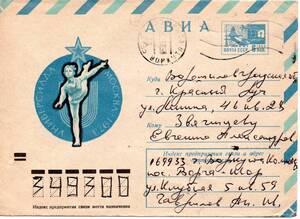 АВИА
ПОЧТА СССР
УНИВЕРСИАДА МОСКВА 1973
Куда Ворошиловградская
г. Красный Луч
ул. Ленина, 46 кв. 23
Кому Звягинцеву
Евгению Александров.
Индекс предприятия связи и адрес
169933 г. Воркута, Коми
пос. Воргашор
ул. Клубная 5 кв. 59
Гаврилов
349300
Индекс предприятия связи места назначения